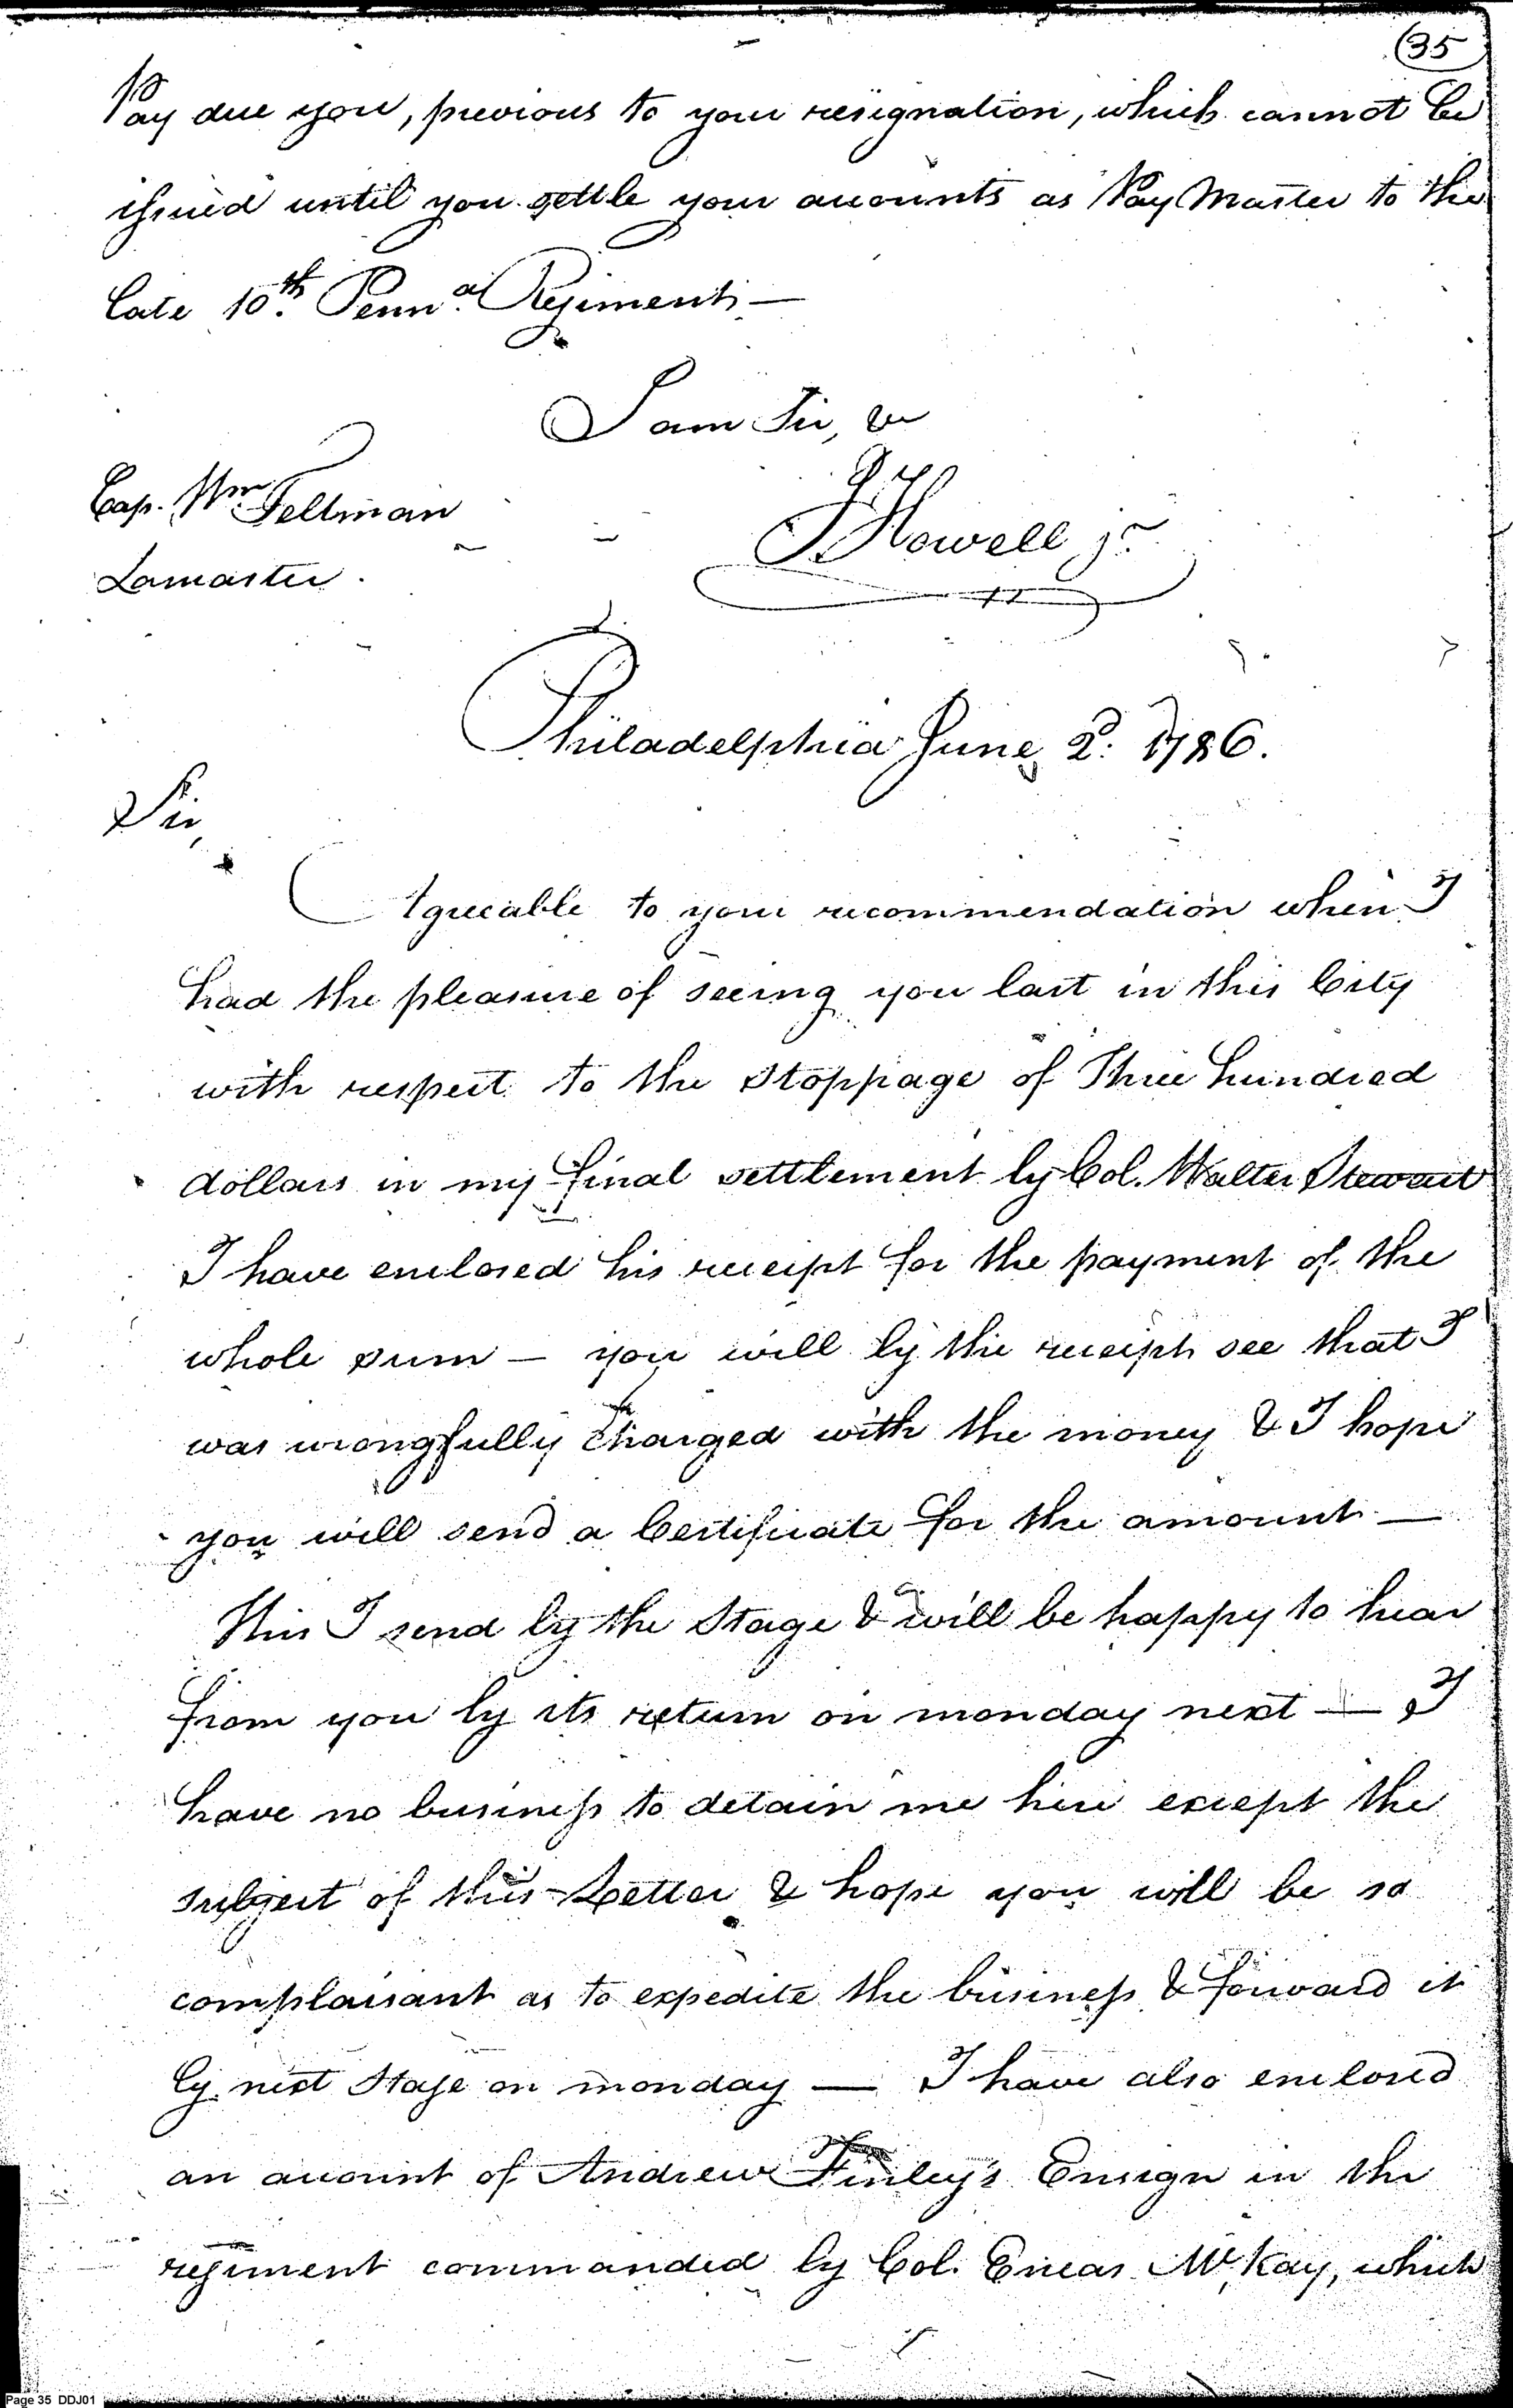 35
Pay due you, previous to your resignation, which cannot be
issued until you settle your accounts as Pay Master to the
late 10th Penna. Regiment —
I am Sir, &c
Cap. Wm. Feltman
J Howell jr.
Lancaster.
Philadelphia June 2d. 1786.
Sir,
Agreeable to your recommendation when I
had the pleasure of seeing you last in this City
with respect to the Stoppage of Three hundred
dollars in my final settlement by Col. Walter Stewart
I have enclosed his receipt for the payment of the
whole sum — you will by the receipt see that I
was wrongfully charged with the money & I hope
you will send a Certificate for the amount —
This I send by the Stage & will be happy to hear
from you by its return on monday next — I
have no business to detain me here except the
subject of this Letter & hope you will be so
complaisant as to expedite the business & forward it
by next Stage on monday — I have also enclosed
an account of Andrew Finley's Ensign in the
regiment commanded by Col. Eneas McKay, which
Page 35 DDJ01